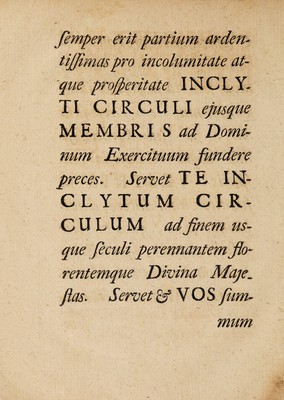 ſemper erit partium arden-
tiſſimas pro incolumitate at-
que proſperitate INCLY-
TI CIRCULI ejusque
MEMBRIS ad Domi-
num Exercituum fundere
preces. Servet TE IN-
CLYTUM CIR-
CULUM ad finem us-
que ſeculi perennantem flo-
rentemque Divina Maje-
ſtas. Servet & VOS ſum-
mum